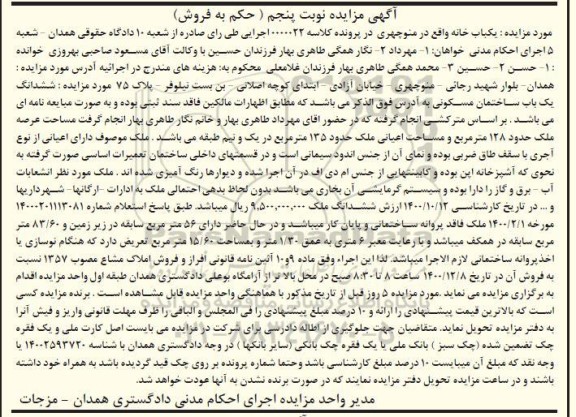 آگهی مزایده نوبت پنجم ( حکم به فروش)
مورد مزایده : یکباب خانه واقع در منوچهری در پرونده کلاسه ۱۰۰۰۰۰۲۲ اجرایی طی رای صادره از شعبه ۱۰ دادگاه حقوقی همدان - شعبه
۵ اجرای احکام مدنی خواهان: ۱- مهرداد ۲- نگار همگی طاهری بهار فرزندان حسین با وکالت آقای مسعود صاحبی بهروزی خوانده
: ۱- حسن ۲- حسین ۳- محمد همگی طاهری بهار فرزندان غلامعلی محکوم به: هزینه های مندرج در اجرائیه آدرس مورد مزایده :
همدان- بلوار شهید رجائی - منوچهری - خیابان آزادی - ابتدای کوچه اصلانی - بن بست نیلوفر - پلاک ۷۵ مورد مزایده : ششدانگ
یک باب ساختمان مسکونی به آدرس فوق الذکر می باشد که مطابق اظهارات مالکین فاقد سند ثبتی بوده و به صورت مبایعه نامه ای
می باشد . بر اساس مترکشی انجام گرفته که در حضور آقای مهرداد طاهری بهار و خانم نگار طاهری بهار انجام گرفت مساحت عرصه
ملک حدود ۱۲۸ مترمربع و مساحت اعیانی ملک حدود ۱۳۵ مترمربع در یک و نیم طبقه می باشد . ملک موصوف دارای اعیانی از نوع
آجری با سقف طاق ضربی بوده و نمای آن از جنس اندود سیمانی است و در قسمتهای داخلی ساختمان تعمیرات اساسی صورت گرفته به
نحوی که آشپزخانه اپن بوده و کابینتهایی از جنس ام دی اف در آن اجرا شده و دیوارها رنگ آمیزی شده اند . ملک مورد نظر انشعابات
آب - برق و گاز را دارا بوده و سیستم گرمایشی آن بخاری می باشد بدون لحاظ بدهی احتمالی ملک به ادارات -ارگانها- شهرداریها
و ... در تاریخ کارشناسی ۱۴۰۰/۱۰/۱۲ ارزش ششدانگ ملک ۹,۵۰۰,۰۰۰,۰۰۰ ریال میباشد. طبق پاسخ استعلام شماره
مورخه ۱۴۰۰/۲/۱ ملک فاقد پروانه ساختمانی و پایان کار میباشد و در حال حاضر دارای ۵۶ متر مربع سابقه در زیر زمین و ۸۳/۶۰ متر
مربع سابقه در همکف میباشد و با رعایت معبر ۶ متری به عمق ۱/۳۰ متر و بمساحت ۱۵/۶۰ متر مربع تعریض دارد که هنگام نوسازی یا
اخذ پروانه ساختمانی لازم الاجرا میباشد. لذا این اجراء وفق ماده ۹و۱۰ آئین نامه قانونی افراز و فروش املاک مشاع مصوب ۱۳۵۷ نسبت
به فروش آن در تاریخ ۱۴۰۰/۱۲/۸ ساعت ۸ تا ۸:۳۰ صبح در محل بالاتر از آرامگاه بوعلی دادگستری همدان طبقه اول واحد مزایده اقدام
به برگزاری مزایده می نماید .مورد مزایده ۵ روز قبل از تاریخ مذکور با هماهنگی واحد مزایده قابل مشاهده است . برنده مزایده کسی
است که بالاترین قیمت پیشنهادی را ارائه و ۱۰ درصد مبلغ پیشنهادی را فی المجلس و الباقی را ظرف مهلت قانونی واریز و فیش آنرا
به دفتر مزایده تحویل نماید. متقاضیان جهت جلوگیری از اطاله دادرسی برای شرکت در مزایده می بایست اصل کارت ملی و یک فقره
چک تضمین شده (چک سبز ) بانک ملی یا یک فقره چک بانکی (سایر بانکها ) در وجه دادگستری همدان با شناسه ۱۴۰۰۲۵۹۳۷۲۰ یا
وجه نقد که مبلغ آن میبایست ۱۰ درصد مبلغ کارشناسی باشد وحتما شماره پرونده بر روی چک قید گردیده باشد به همراه خود داشته
باشند و در ساعت مزایده تحویل دفتر مزایده نمایند که در صورت برنده نشدن به آنها عودت خواهد شد.
مدیر واحد مزایده اجرای احکام مدنی دادگستری همدان - مزجات